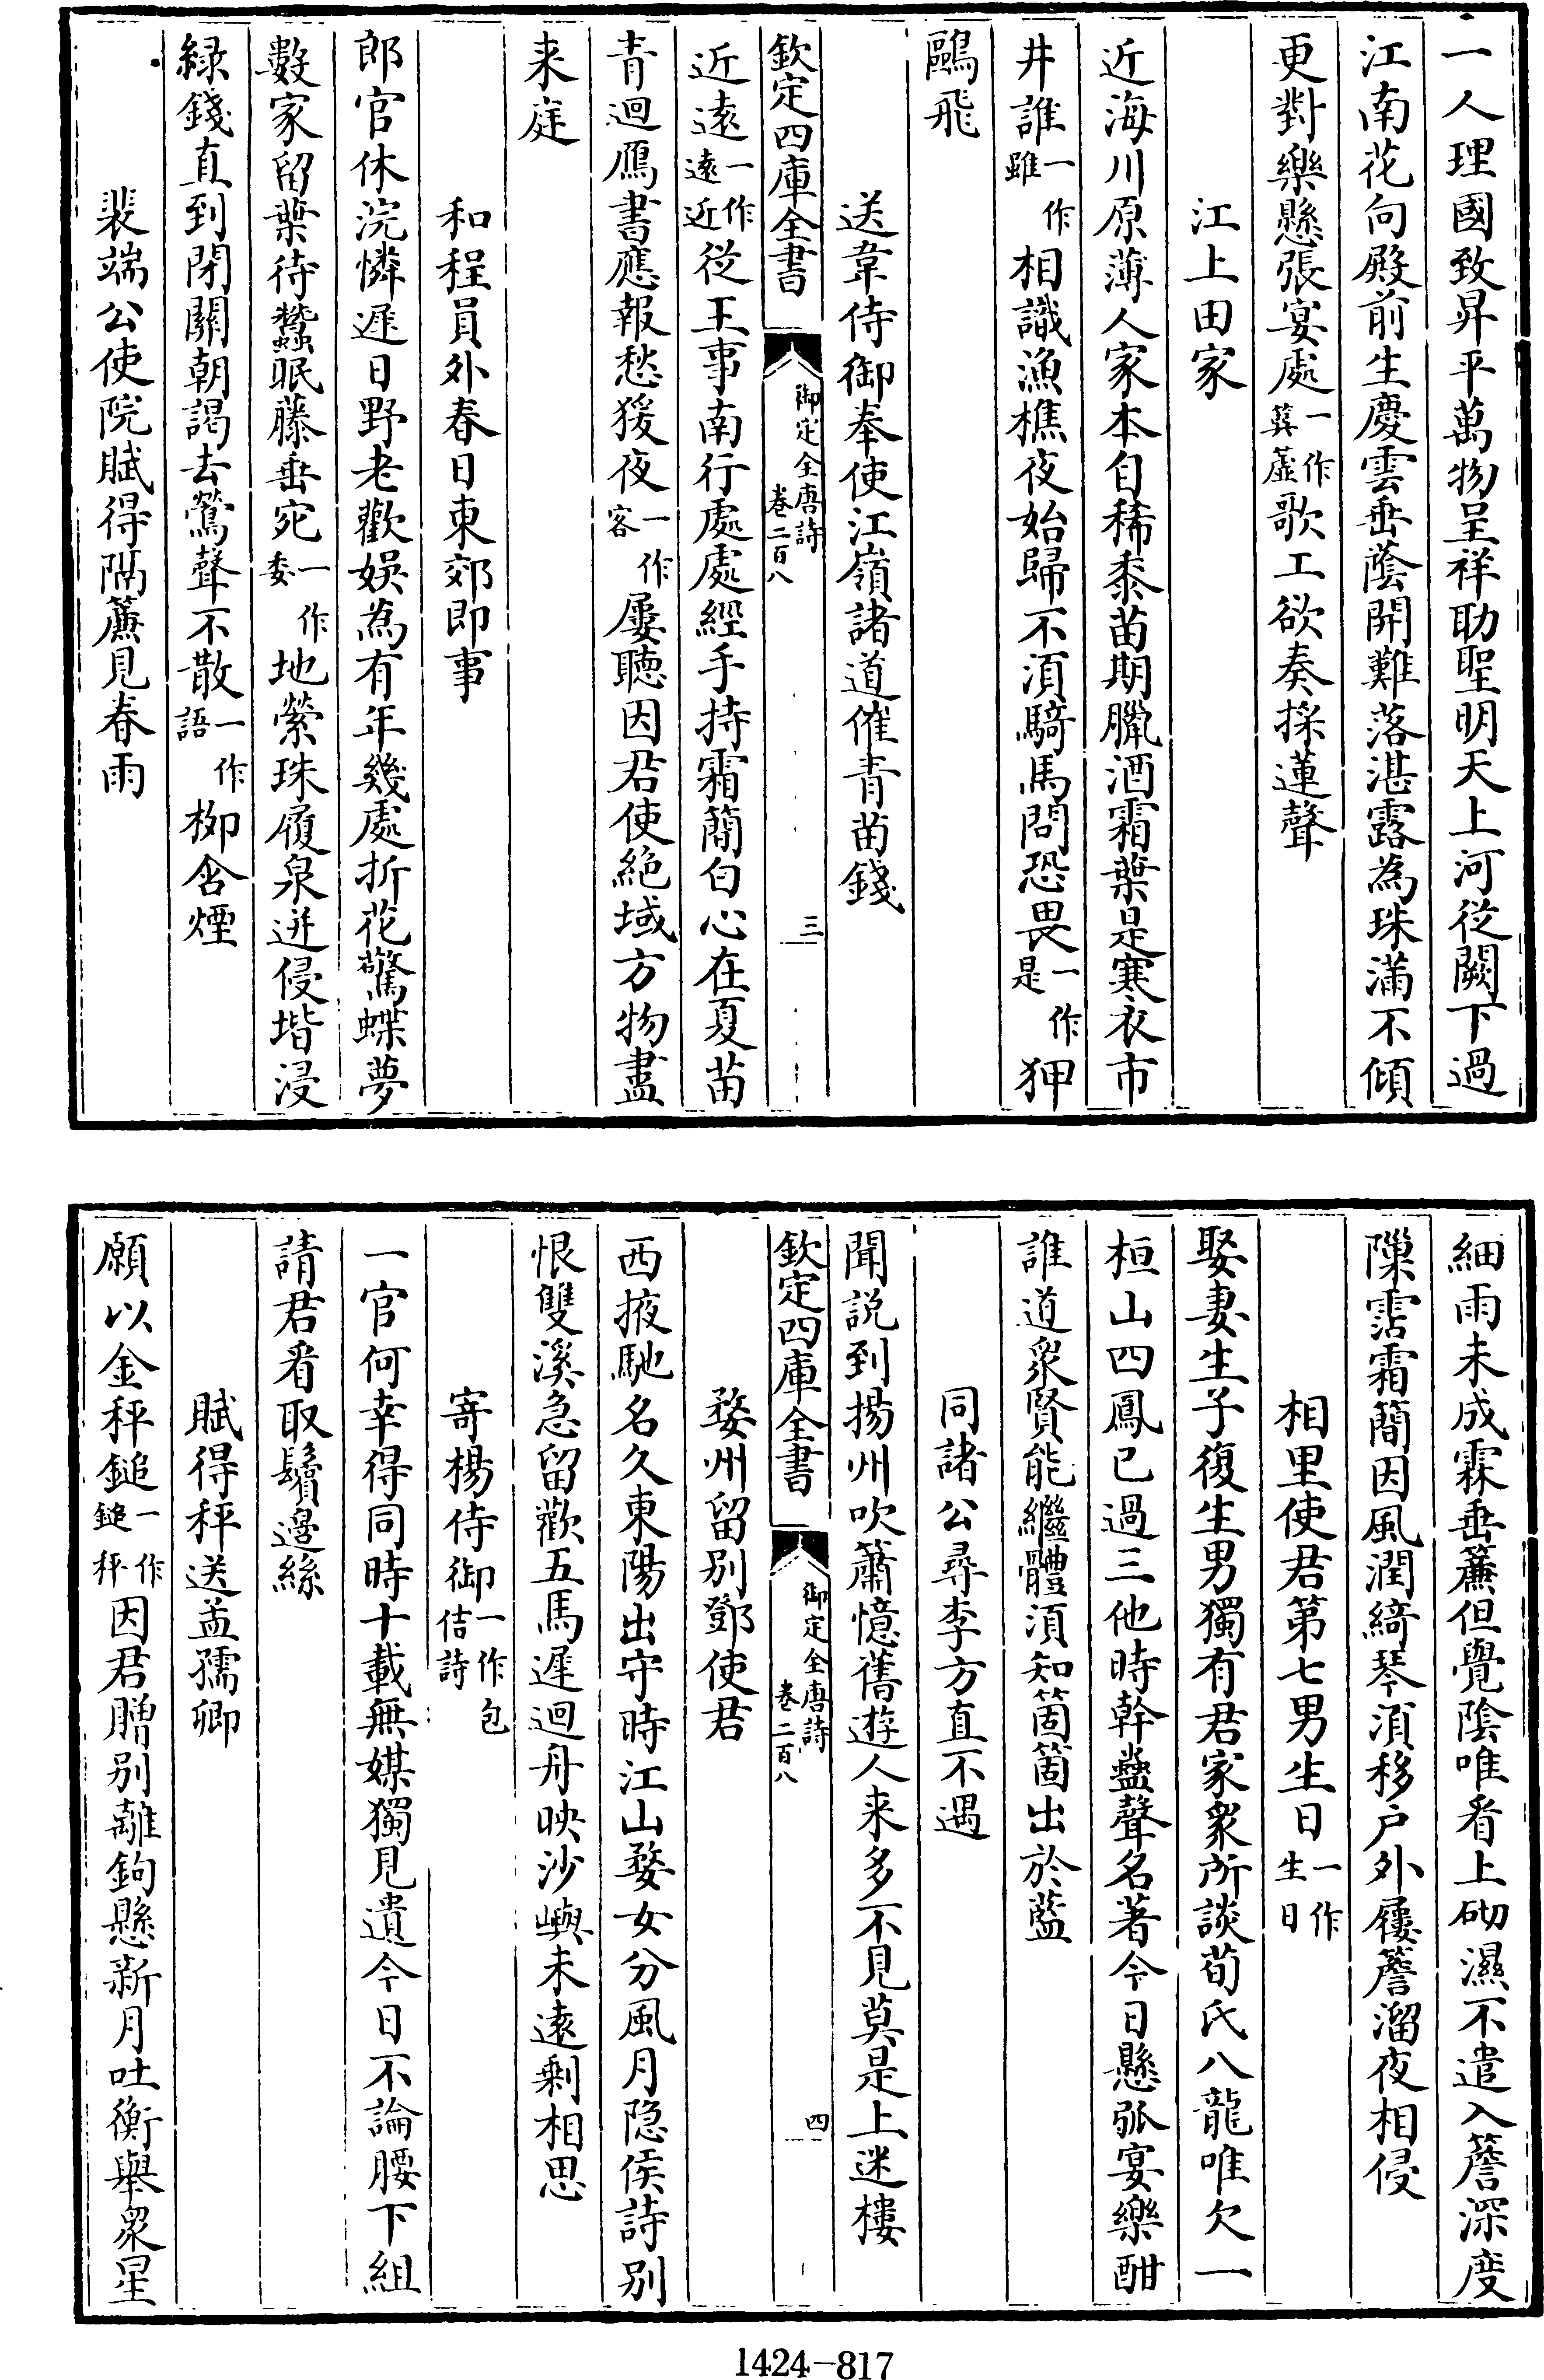 一人理國致昇平萬物呈祥助聖明天上河從闕下過
江南花向殿前生慶雲垂蔭開難落湛露為珠滿不傾
更對樂懸張宴處一作簨虡歌工欲奏採蓮聲
江上田家
近海川原薄人家本自稀黍苗期臘酒霜葉是寒衣市
井誰一作雖相識漁樵夜始歸不須騎馬問恐畏一作是狎
鷗飛
送韋侍御奉使江嶺諸道催青苗錢
欽定四庫全書
御定全唐詩
卷二百八
三
近遠一作遠近從王事南行處處經手持霜簡白心在夏苗
青迴鴈書應報愁猨夜一作客屢聽因君使絶域方物盡
来庭
和程員外春日東郊即事
郎官休浣憐遲日野老歡娯為有年幾處折花驚蝶夢
數家留葉待蠶眠藤垂宛一作委地縈珠履泉迸侵堦浸
緑錢直到閉關朝謁去鶯聲不散一作語柳含煙
裴端公使院賦得隔簾見春雨
細雨未成霖垂簾但覺陰唯看上砌濕不遣入簷深度
隟霑霜簡因風潤綺琴須移户外屨簷溜夜相侵
相里使君第七男生日一作生日
娶妻生子復生男獨有君家衆所談荀氏八龍唯欠一
桓山四鳳已過三他時幹蠱聲名著今日懸弧宴樂酣
誰道衆賢能繼體須知箇箇出於藍
同諸公尋李方直不遇
聞説到揚州吹簫憶舊遊人来多不見莫是上迷樓
欽定四庫全書
御定全唐詩
卷二百八
四
婺州留别鄧使君
西掖馳名久東陽出守時江山婺女分風月隐侯詩别
恨雙溪急留歡五馬遲迴舟映沙嶼未遠剩相思
寄楊侍御一作包佶詩
一官何幸得同時十載無媒獨見遺今日不論腰下組
請君看取鬢邊絲
賦得秤送孟孺卿
願以金秤鎚一作鎚秤因君贈别離鉤懸新月吐衡舉衆星
1424—817